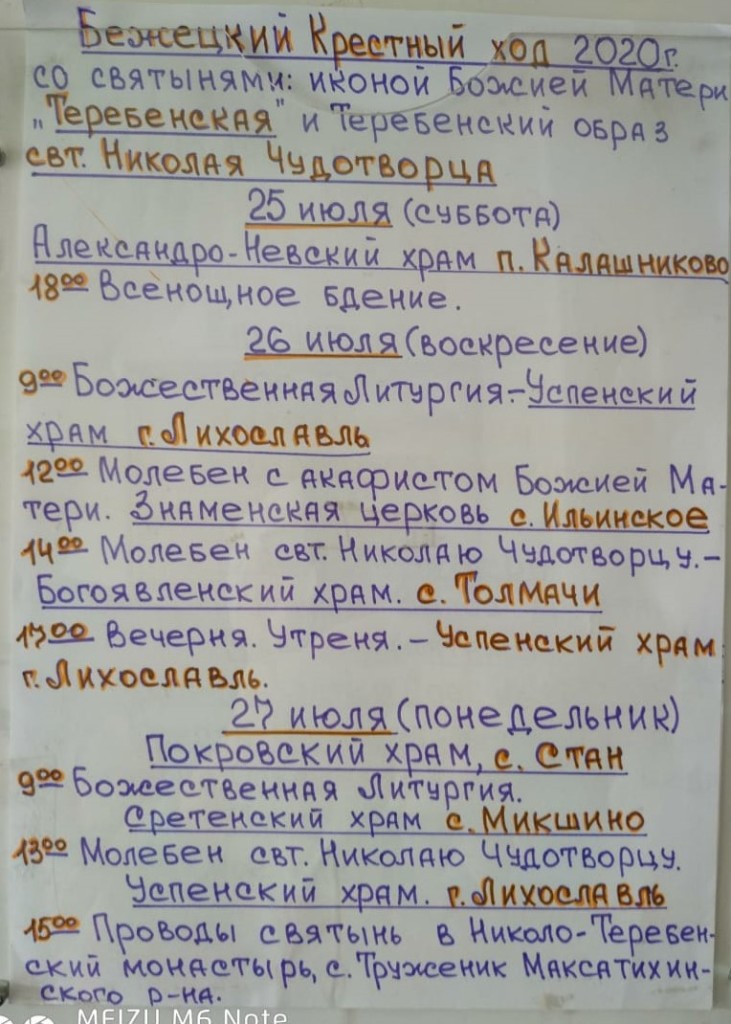 Бежецкий Крестный ход 2020г.
со святынями: иконой Божией Матери
„Теребенская" и Теребенский образ
свт. Николая Чудотворца
25 июля (суббота)
Александро-Невский храм п. Калашниково
18⁰⁰ Всенощное бдение.
26 июля (воскресение)
9⁰⁰ Божественная Литургия.-Успенский
храм г. Лихославль
12⁰⁰ Молебен с акафистом Божией Ма-
тери. Знаменская церковь с. Ильинское
14⁰⁰ Молебен свт. Николаю Чудотворцу.-
Богоявленский храм. с. Толмачи
17⁰⁰ Вечерня. Утреня.- Успенский храм
г. Лихославль.
27 июля (понедельник)
Покровский храм, с. Стан
9⁰⁰ Божественная Литургия.
Сретенский храм с. Микшино
13⁰⁰ Молебен свт. Николаю Чудотворцу.
Успенский храм. г. Лихославль
15⁰⁰ Проводы святынь в Николо-Теребен-
ский монастырь, с. Труженик Максатихин-
ского р-на.
MEIZU M6 Note